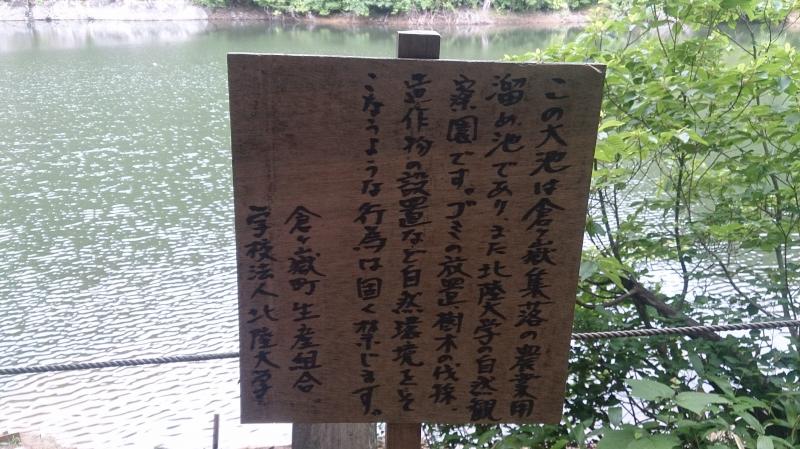 この大池は倉ヶ嶽集落の農業用
溜め池であり、また北陸大学の自然観
察園です。ゴミの放置、樹木の伐採、
造作物の設置など自然環境をそ
こなうような行為は固く禁じます。
倉ヶ嶽町生産組合
学校法人北陸大学